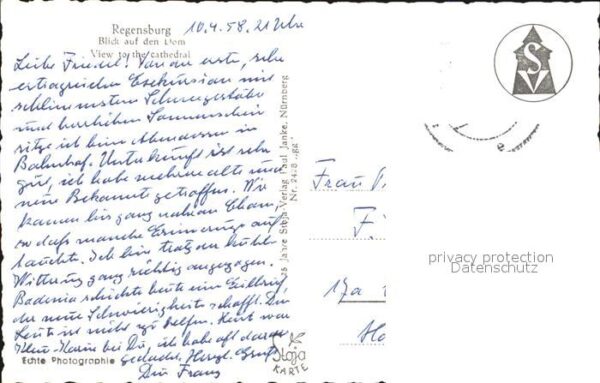 Regensburg
Blick auf den Dom
View to the cathedral
10.4.58. 21 Uhr
Liebe Friedel! Von der ersten, sehr
ertragreichen Exkursion mit
schlimmstem Schneegestöber
und herrlichem Sonnenschein
sitze ich beim Abendessen im
Bahnhof. Unterkunft ist sehr
gut, ich habe mehrere alte und
neue Bekannte getroffen. Wir
kamen bis ganz nah an Cham,
so daß manche Erinnerung auf
tauchte. Ich bin trotz der kühlen
Witterung ganz richtig angezogen.
Badenia schickte heute eine Eilbrief,
der neue Schwierigkeiten schafft. Den
Leuten ist nicht zu helfen. Heute war
bei Dir, ich habe oft daran
gedacht. Herzl. Gruß
Dein Franz
Echte Photographie
25 Jahre Stoja-Verlag Paul Janke, Nürnberg
Stoja
KARTE
S
V
Frau
17a
privacy protection
Datenschutz